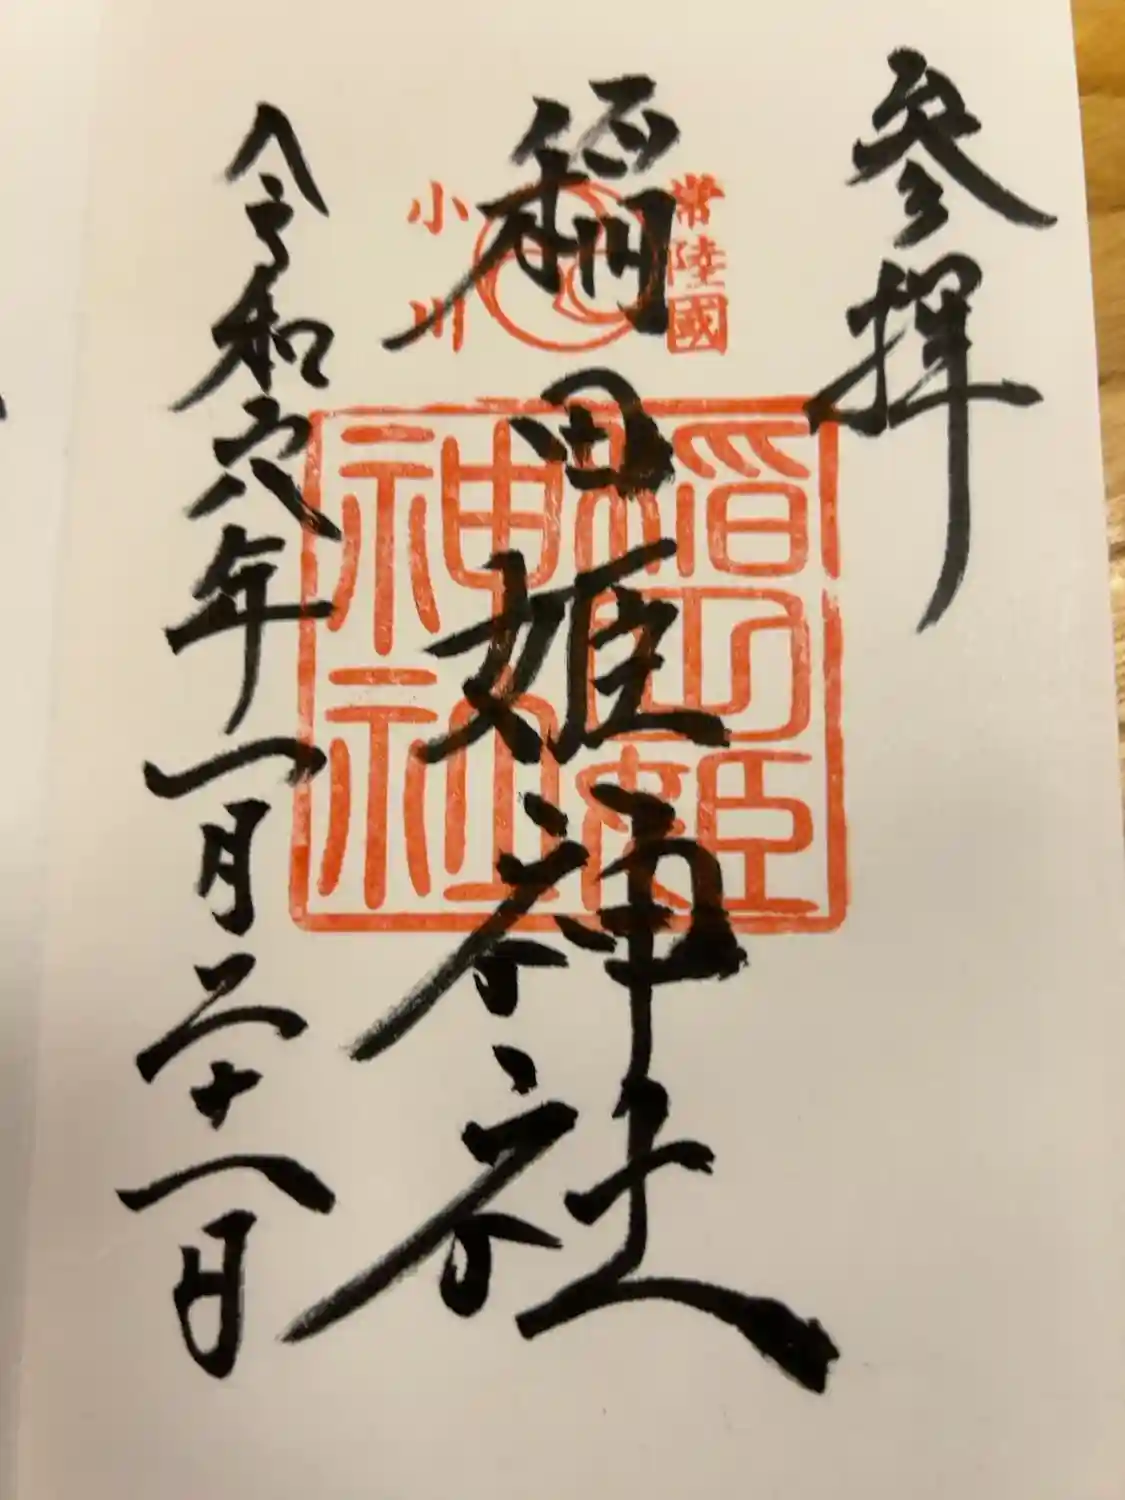 参拝
常陸國
稲田姫神社
小川
稲田姫
神社
令和六年一月二十一日